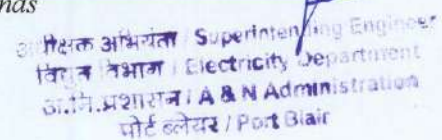 nds
अधीक्षक अभियंता / Superintending Engineer
विद्युत विभाग / Electricity Department
अ.नि.प्रशासन / A & N Administration
पोर्ट ब्लेयर / Port Blair